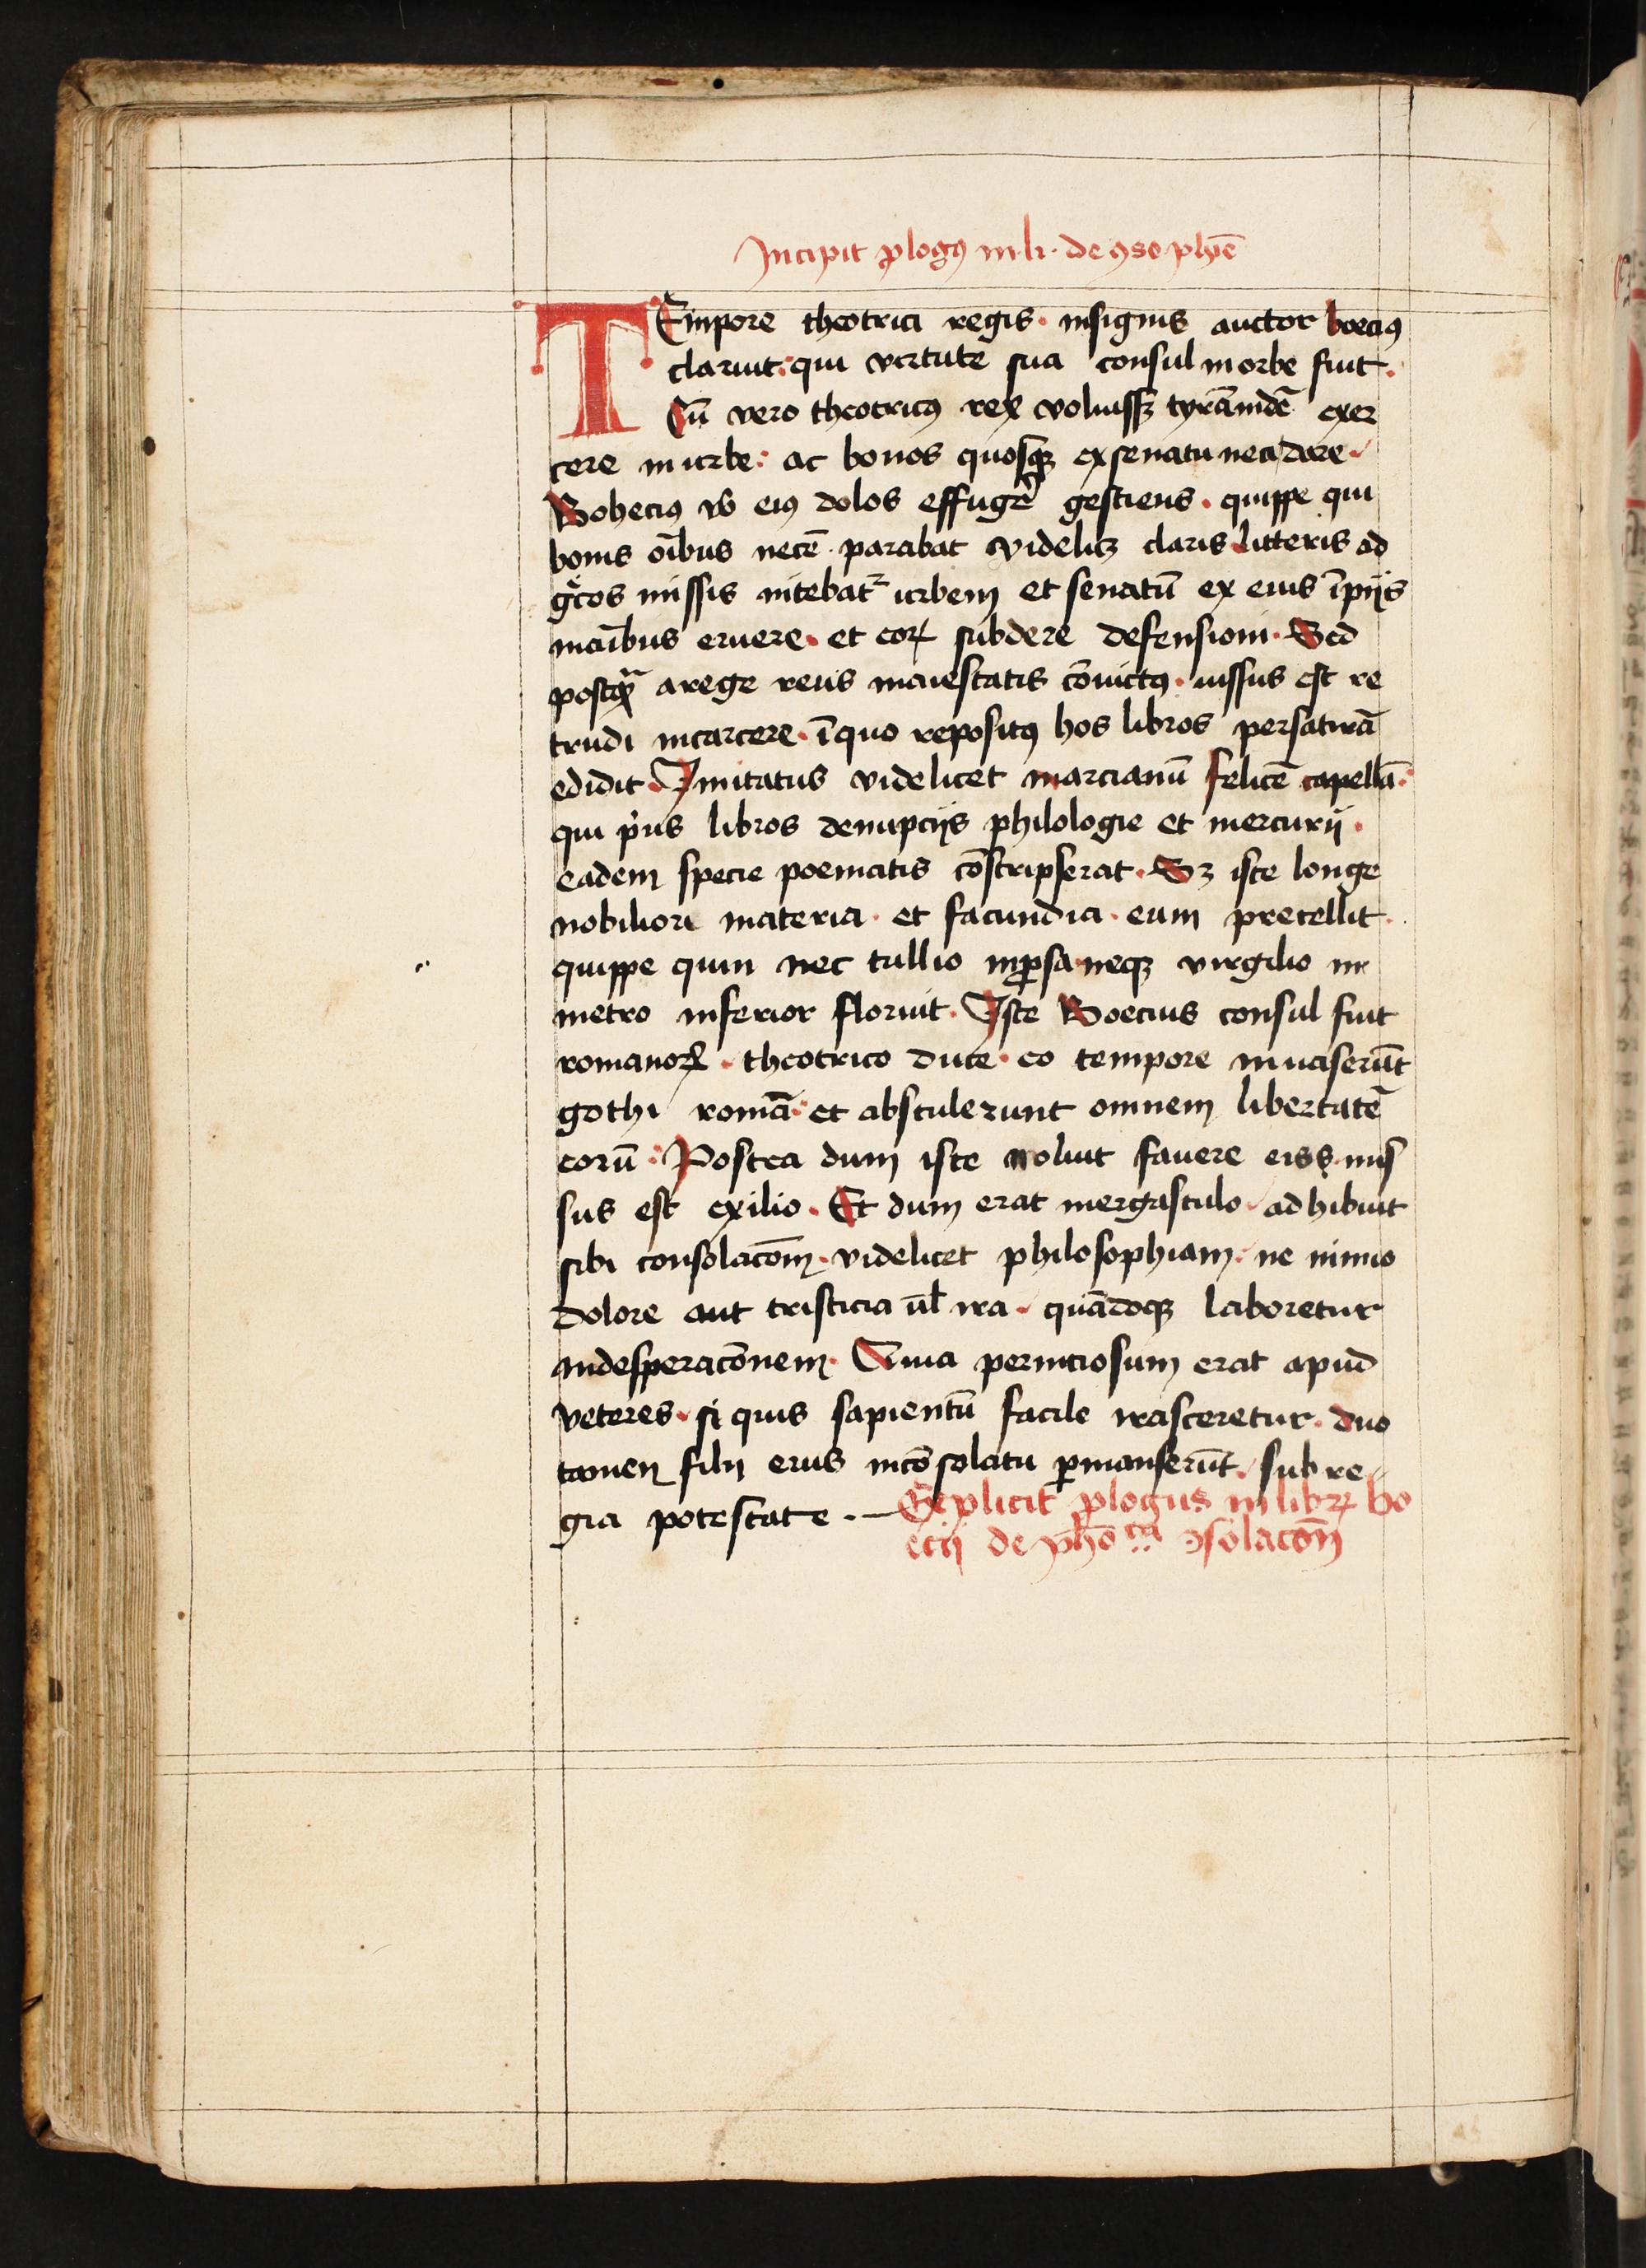 Incipit ꝓlogꝰ in li · de ꝯso phīe
TEmpore theotrici regis · insignis auctor boeciꝰ
claruit : qui virtute sua consul in orbe fuit .
Cū vero theotricꝰ rex voluissꝫ tyrānidē exer
cere in urbe : ac bonos quosqꝫ ex senatu neci dare ·
Boheciꝰ v̉o eiꝰ dolos effuger̄ gestiens · quippe qui
bonis oībus necē parabat videlicꝫ claris litteris ad
gͦcos missis nitebatᷣ urbem et senatū ex eius īpijs
manibus eruere · et eoꝝ subdere defensioni · Sed
postqͣꝫ a rege reus maiestatis cōuictꝰ · iussus est re
trudi in carcere · ī quo repositꝰ hos libros per satirā
edidit · Imitatus videlicet marcianū felicē capellā :
qui pͥus libros de nupcijs philologie et mercurij ·
eadem specie poematis cōscripserat · Sꝫ iste longe
nobiliori materia · et facundia · eum precellit ·
quippe qum nec tullio in ꝓsa neqꝫ virgilio in
metro inferior floruit · Iste Boecius consul fuit
romanoꝝ · theotrico duce · eo tempore inuaserūt
gothi romā : et abstulerunt omnem libertatē
eorū : Postea dum iste noluit fauere eis · mis
sus est exilio · Et dum erat in ergastulo · adhibuit
sibi consolacōm · videlicet philosophiam : ne nimio
dolore aut tristicia ūl ira · quādoqꝫ laboretur
in desperacōnem · Quia perniciosum erat apud
veteres · si quis sapientū facile irasceretur · duo
tamen filii eius incōsolatu ꝑmanserūt · sub re
gia potestate · — Explicit ꝓlogus in libꝝ bo
ecij de phōca ꝯsolacōn